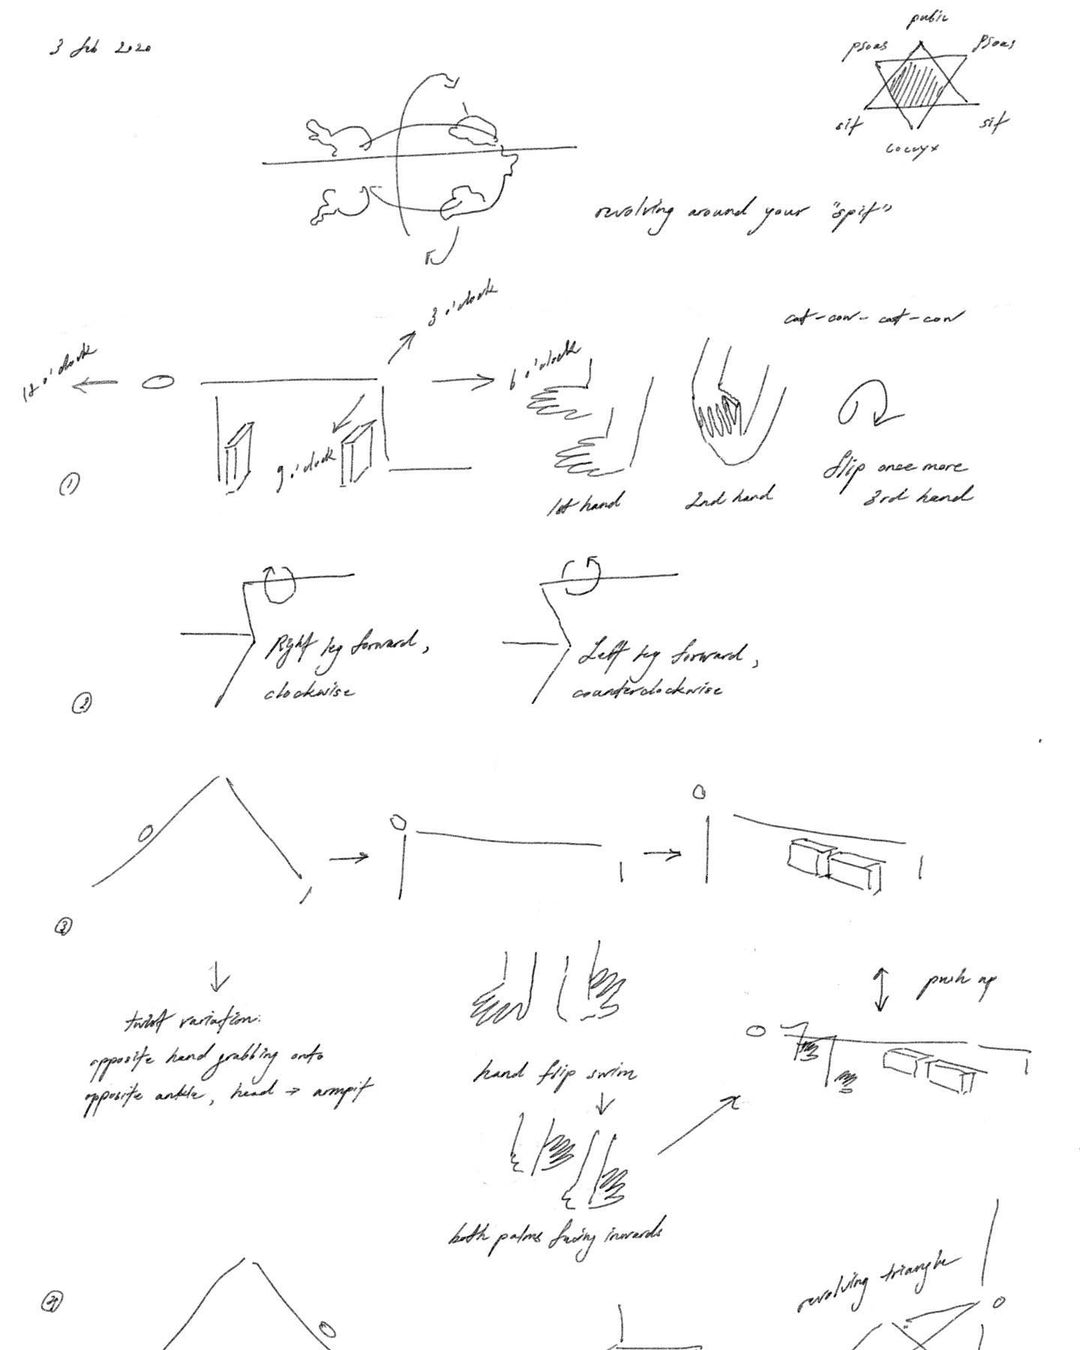 3 feb 2020
pubic
psoas
psoas
sit
sit
coccyx
revolving around your "spit"
3 o'clock
12 o'clock
6 o'clock
9 o'clock
cat-cow-cat-cow
1
1st hand
2nd hand
flip once more
3rd hand
2
Right leg forward,
clockwise
Left leg forward,
counterclockwise
3
twist variation:
opposite hand grabbing onto
opposite ankle, head → armpit
hand flip swim
push up
both palms facing inwards
revolving triangle